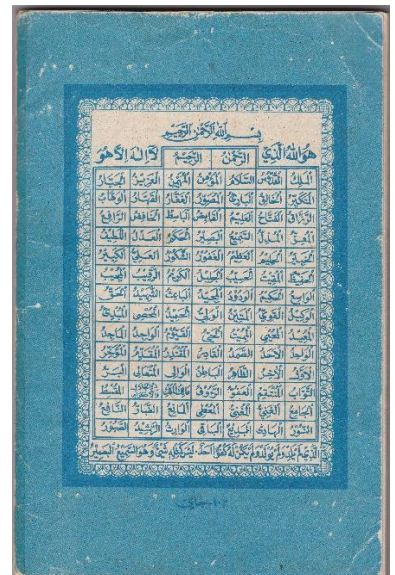 بِسْمِ اللهِ الرَّحْمٰنِ الرَّحِيْمِ
هُوَ اللهُ الَّذِيْ لَا اِلٰهَ اِلَّا هُوَ الرَّحْمٰنُ الرَّحِيْمُ
اَلْمَلِكُ اَلْقُدُّوْسُ اَلسَّلَامُ اَلْمُؤْمِنُ اَلْمُهَيْمِنُ اَلْعَزِيْزُ اَلْجَبَّارُ
اَلْمُتَكَبِّرُ اَلْخَالِقُ اَلْبَارِئُ اَلْمُصَوِّرُ اَلْغَفَّارُ اَلْقَهَّارُ اَلْوَهَّابُ
اَلرَّزَّاقُ اَلْفَتَّاحُ اَلْعَلِيْمُ اَلْقَابِضُ اَلْبَاسِطُ اَلْخَافِضُ اَلرَّافِعُ
اَلْمُعِزُّ اَلْمُذِلُّ اَلسَّمِيْعُ اَلْبَصِيْرُ اَلْحَكَمُ اَلْعَدْلُ اَللَّطِيْفُ
اَلْخَبِيْرُ اَلْحَلِيْمُ اَلْعَظِيْمُ اَلْغَفُوْرُ اَلشَّكُوْرُ اَلْعَلِيُّ اَلْكَبِيْرُ
اَلْحَفِيْظُ اَلْمُقِيْتُ اَلْحَسِيْبُ اَلْجَلِيْلُ اَلْكَرِيْمُ اَلرَّقِيْبُ اَلْمُجِيْبُ
اَلْوَاسِعُ اَلْحَكِيْمُ اَلْوَدُوْدُ اَلْمَجِيْدُ اَلْبَاعِثُ اَلشَّهِيْدُ اَلْحَقُّ
اَلْوَكِيْلُ اَلْقَوِيُّ اَلْمَتِيْنُ اَلْوَلِيُّ اَلْحَمِيْدُ اَلْمُحْصِي اَلْمُبْدِئُ
اَلْمُعِيْدُ اَلْمُحْيِي اَلْمُمِيْتُ اَلْحَيُّ اَلْقَيُّوْمُ اَلْوَاجِدُ اَلْمَاجِدُ
اَلْوَاحِدُ اَلْاَحَدُ اَلصَّمَدُ اَلْقَادِرُ اَلْمُقْتَدِرُ اَلْمُقَدِّمُ اَلْمُؤَخِّرُ
اَلْاَوَّلُ اَلْاٰخِرُ اَلظَّاهِرُ اَلْبَاطِنُ اَلْوَالِي اَلْمُتَعَالِي اَلْبَرُّ
اَلتَّوَّابُ اَلْمُنْتَقِمُ اَلْعَفُوُّ اَلرَّءُوْفُ مَالِكُ الْمُلْكِ ذُو الْجَلَالِ وَالْاِكْرَامِ اَلْمُقْسِطُ
اَلْجَامِعُ اَلْغَنِيُّ اَلْمُغْنِي اَلْمُعْطِي اَلْمَانِعُ اَلضَّارُّ اَلنَّافِعُ
اَلنُّوْرُ اَلْهَادِي اَلْبَدِيْعُ اَلْبَاقِي اَلْوَارِثُ اَلرَّشِيْدُ اَلصَّبُوْرُ
اَلَّذِيْ لَمْ يَلِدْ وَلَمْ يُوْلَدْ وَلَمْ يَكُنْ لَّهُ كُفُوًا اَحَدٌ لَيْسَ كَمِثْلِهِ شَيْءٌ وَهُوَ السَّمِيْعُ الْبَصِيْرُ